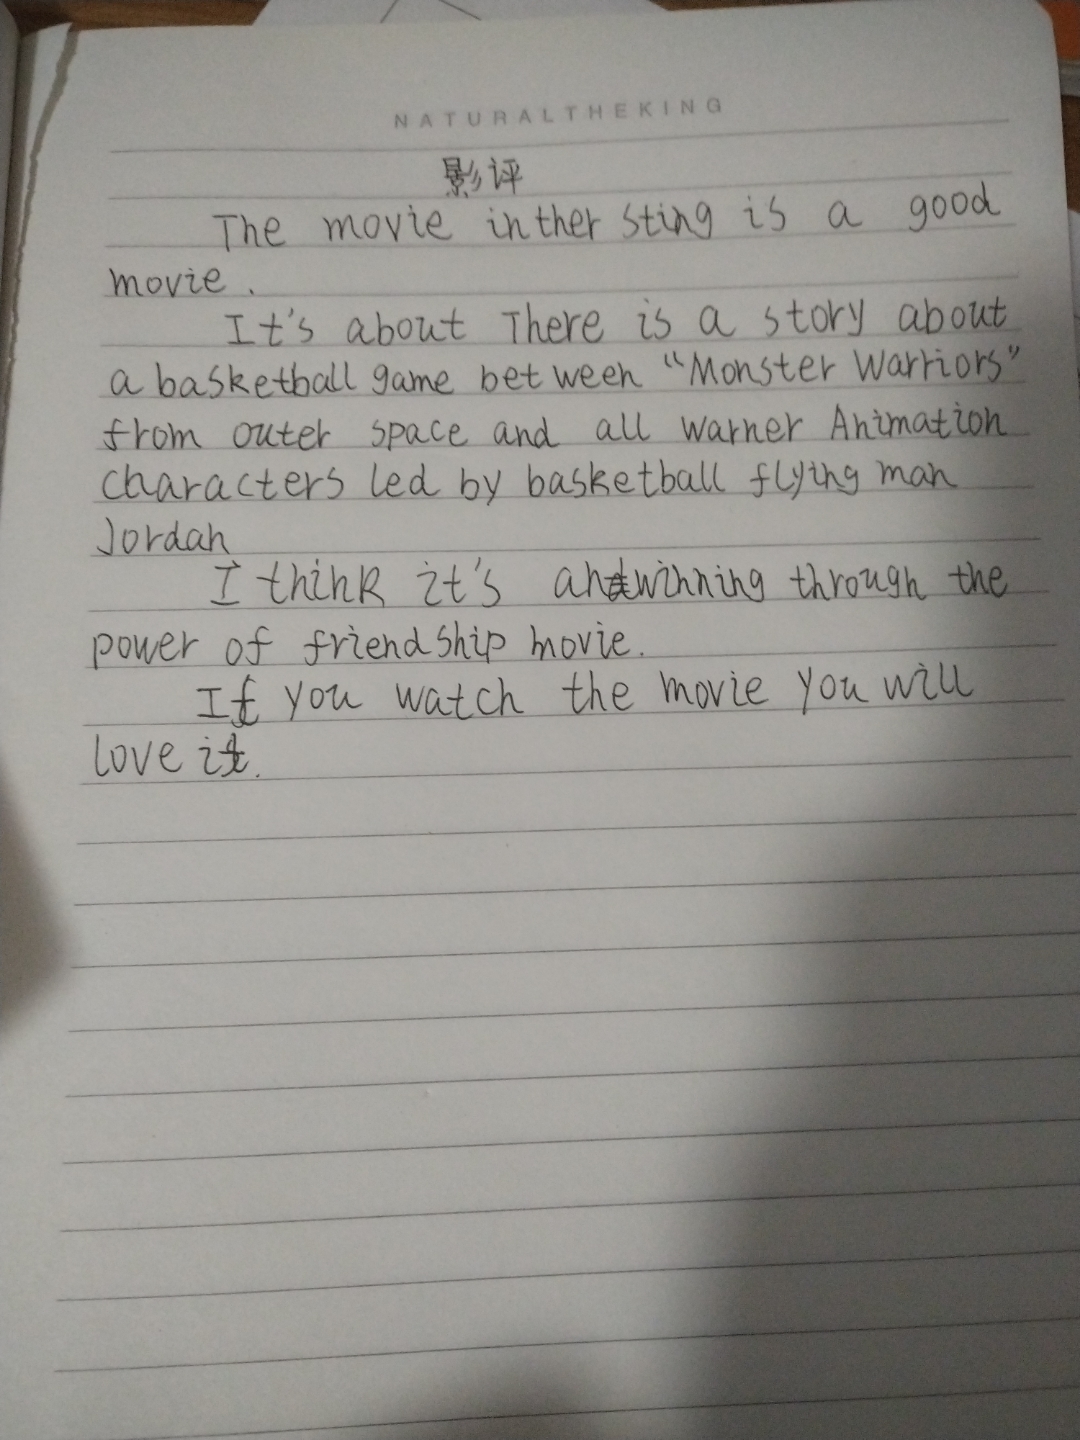 NATURALTHEKING
影评
The movie inther sting is a good
movie.
It's about There is a story about
a basketball game between “Monster Warriors”
from outer space and all Warner Animation
characters led by basketball flying man
Jordan
I think it's an winning through the
power of friendship movie.
If you watch the movie you will
love it.